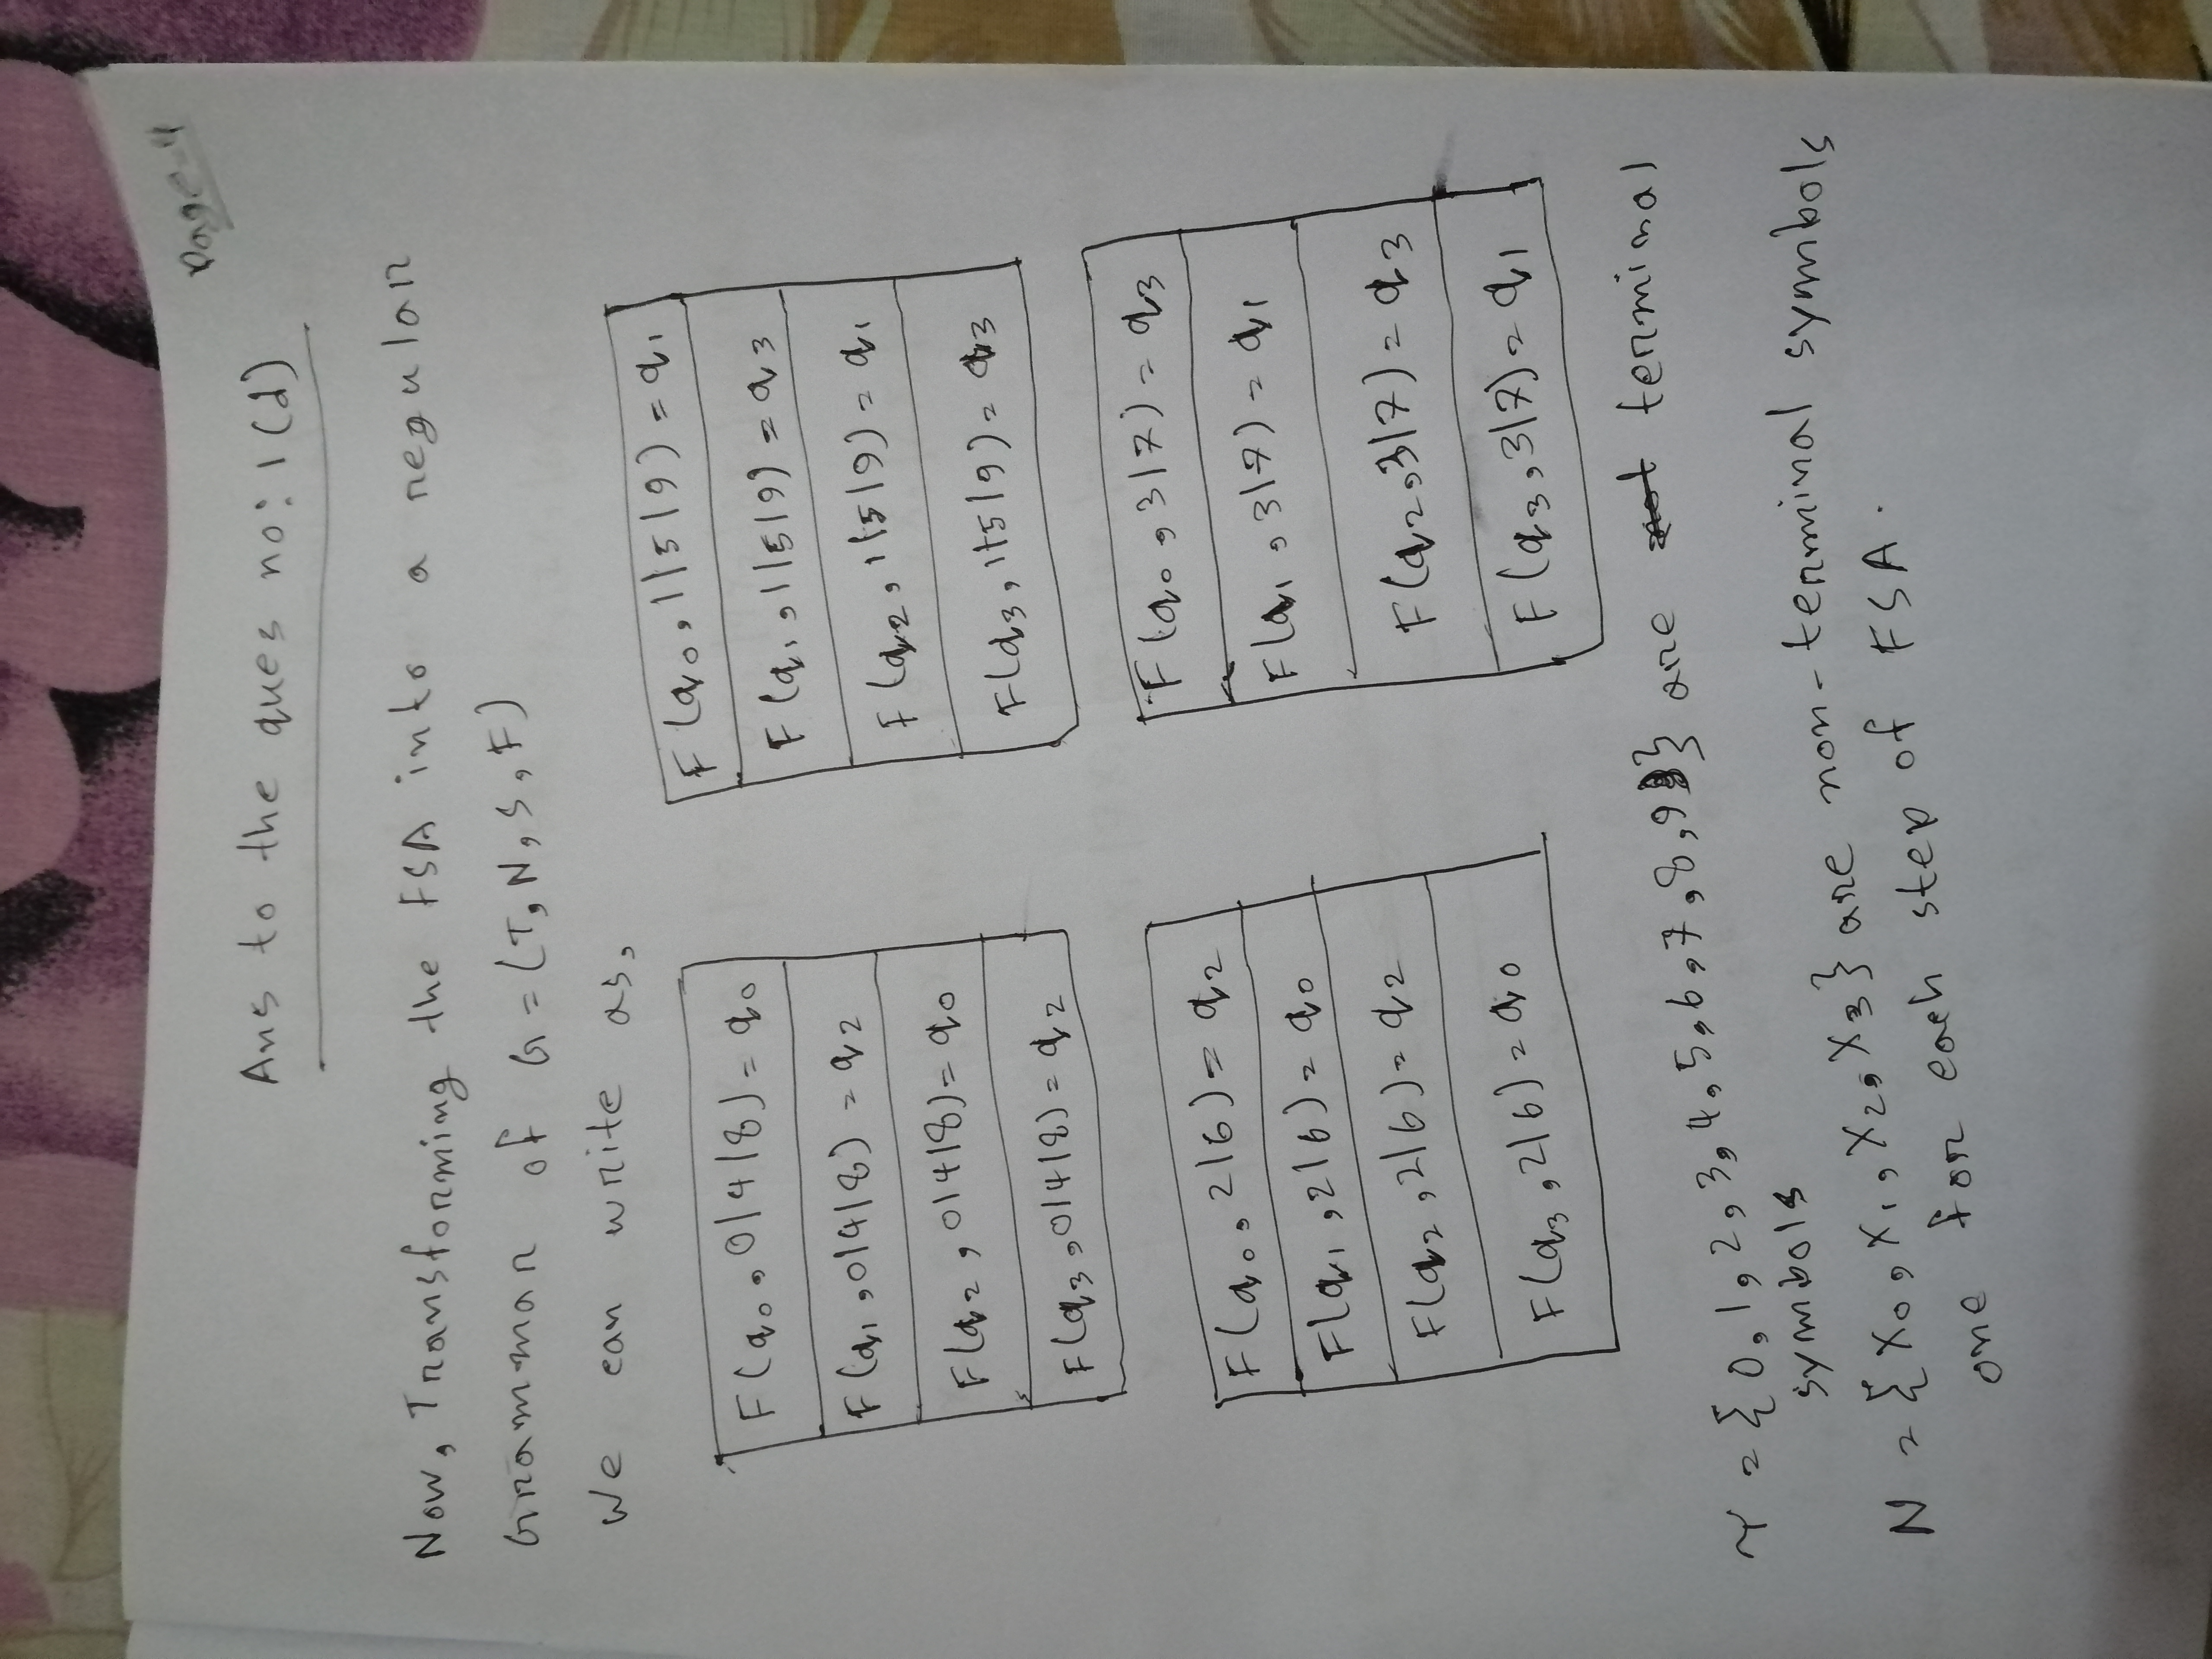 Page-4
Ans to the ques no: 1(d)
Now, Transforming the FSA into a regular
Grammar of G = (T, N, S, F)
We can write as,
F(q0, 0|4|8) = q0
F(q1, 0|4|8) = q2
F(q2, 0|4|8) = q0
F(q3, 0|4|8) = q2
F(q0, 1|5|9) = q1
F(q1, 1|5|9) = q3
F(q2, 1|5|9) = q1
F(q3, 1|5|9) = q3
F(q0, 2|6) = q2
F(q1, 2|6) = q0
F(q2, 2|6) = q2
F(q3, 2|6) = q0
F(q0, 3|7) = q3
F(q1, 3|7) = q1
F(q2, 3|7) = q3
F(q3, 3|7) = q1
T = {0, 1, 2, 3, 4, 5, 6, 7, 8, 9} are terminal
symbols
N = {X0, X1, X2, X3} are non-terminal symbols
one for each step of FSA.